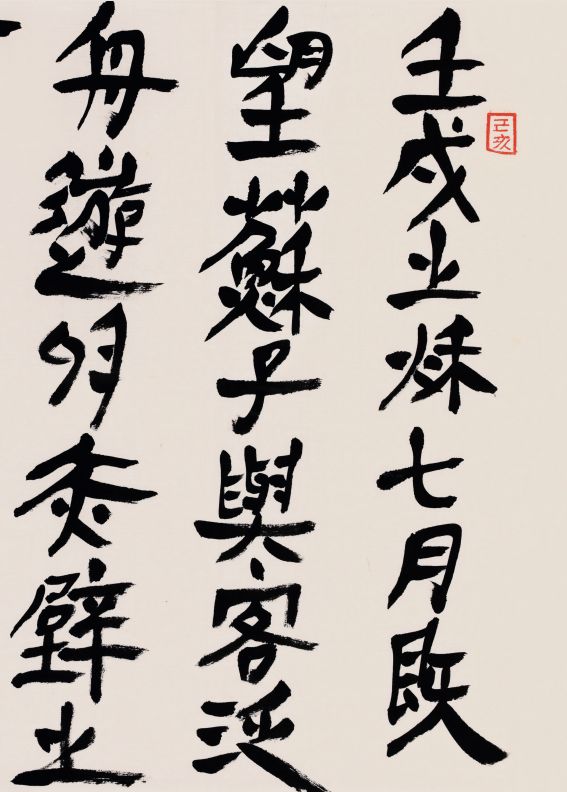 己亥
壬戌之秌七月既
望蘇子與客泛
舟遊於赤壁之